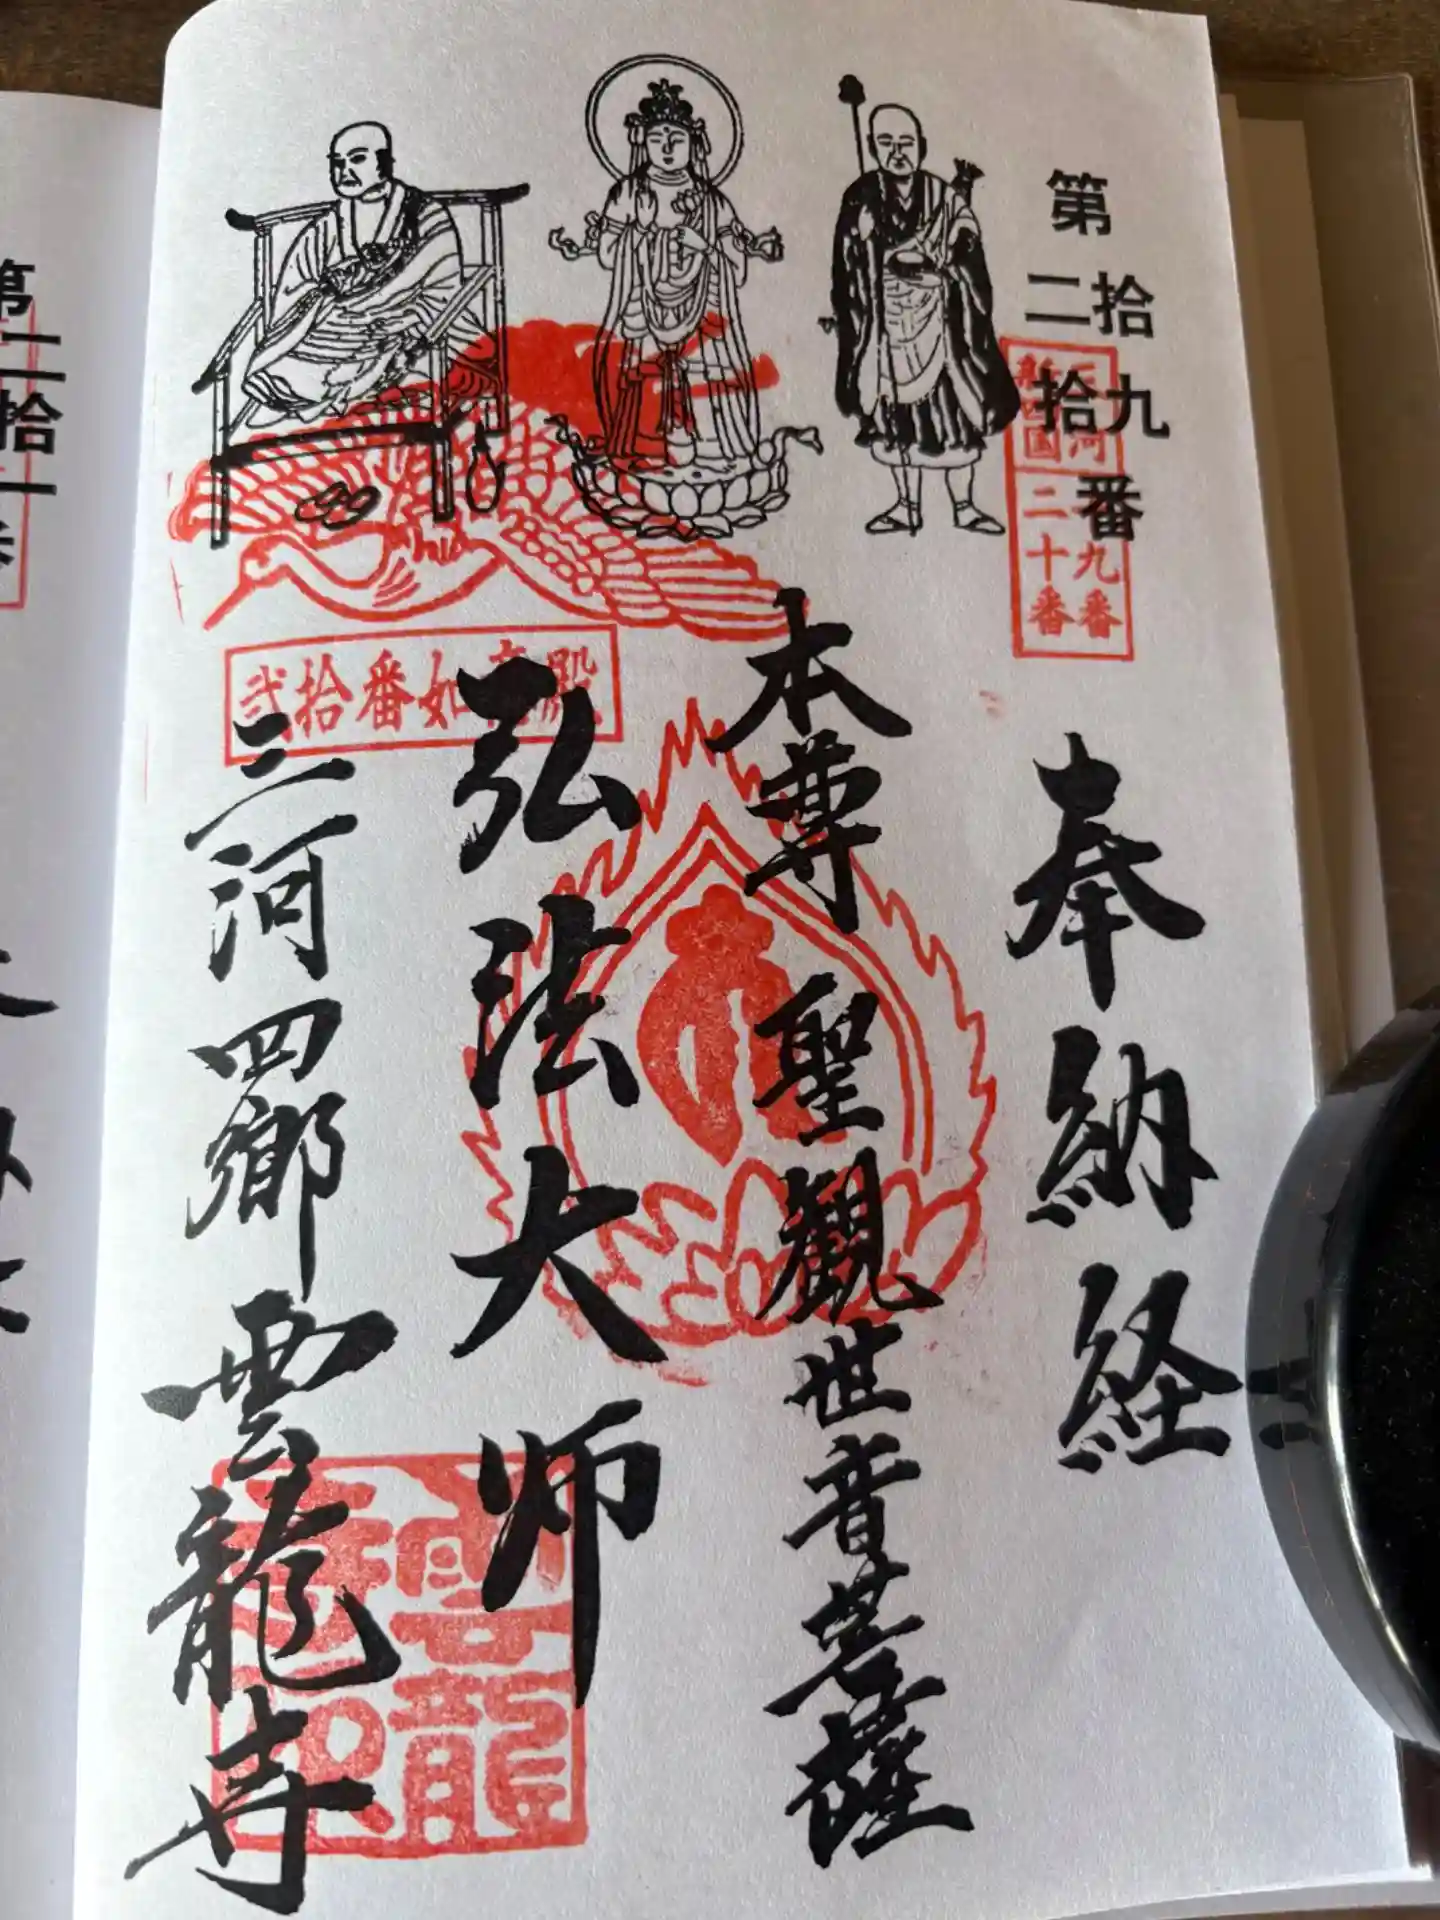 第
拾九
二拾
番
三河
新四国
十九番
二十番
奉納経
本尊聖観世音菩薩
弘法大师
三河四郷雲龍寺
弐拾番如意殿
雲龍